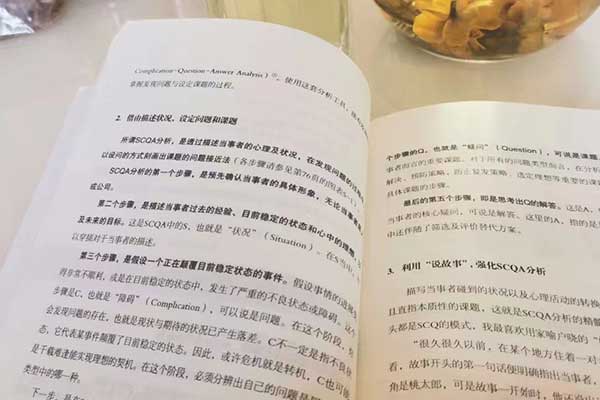 Complication-Question-Answer Analysis)®，使用这套分析工具，
掌握发现问题与设定课题的过程。
2. 借由描述状况、设定问题和课题
所谓SCQA分析，是透过描述当事者的心理及状况，在发现问题的
以设问的方式刻画出课题的问题接近法（各步骤请参见第76页的图表5-1）
SCQA分析的第一个步骤，是预先确认当事者的具体形象，无论当事者
或公司。
第二个步骤，是描述当事者过去的经验、目前稳定的状态和心中的理想，
及未来的目标。这是SCQA中的S，也就是“状况”（Situation）。在S当中，
以穿插对于当事者的描述。
第三个步骤，是假设一个正在颠覆目前稳定状态的事件。假设事情的进展
得非常不顺利，或是在目前稳定的状态中，发生了严重的不良状态或障碍。这个
步骤是C，也就是“障碍”（Complication），可以说是问题。在这个阶段，
会发现问题的存在，也就是现状与期待的状况已产生落差。C不一定是指不良状
态，它代表某事件颠覆了目前稳定的状态。因此，或许危机就是转机，C也可能
是千载难逢能实现理想的契机。在这个阶段，必须分辨出自己的问题是
类型中的哪一种。
下一步，是在
个步骤的Q，也就是“疑问”（Question），可说是课题
事者而言的重要课题。对于所有的问题类型而言，在分析
解决、预防策略、防止复发策略、选定理想等重要的课
具体课题的步骤。
最后的第五个步骤，即是思考出Q的解答。这是A，
当事者的核心疑问，可说是解答。这里的A，指的是
中还伴随了筛选及评价替代方案。
3. 利用“说故事”，强化SCQA分析
描写当事者碰到的状况以及心理活动的转换
且直指本质性的课题，这就是SCQA分析的精髓
头都是SCQ的模式，我最喜欢用家喻户晓的“
“很久很久以前，在某个地方住着一对
看，故事开头的第一句话便明确指出当事者，
角是桃太郎，可是故事一开始时，他还没出